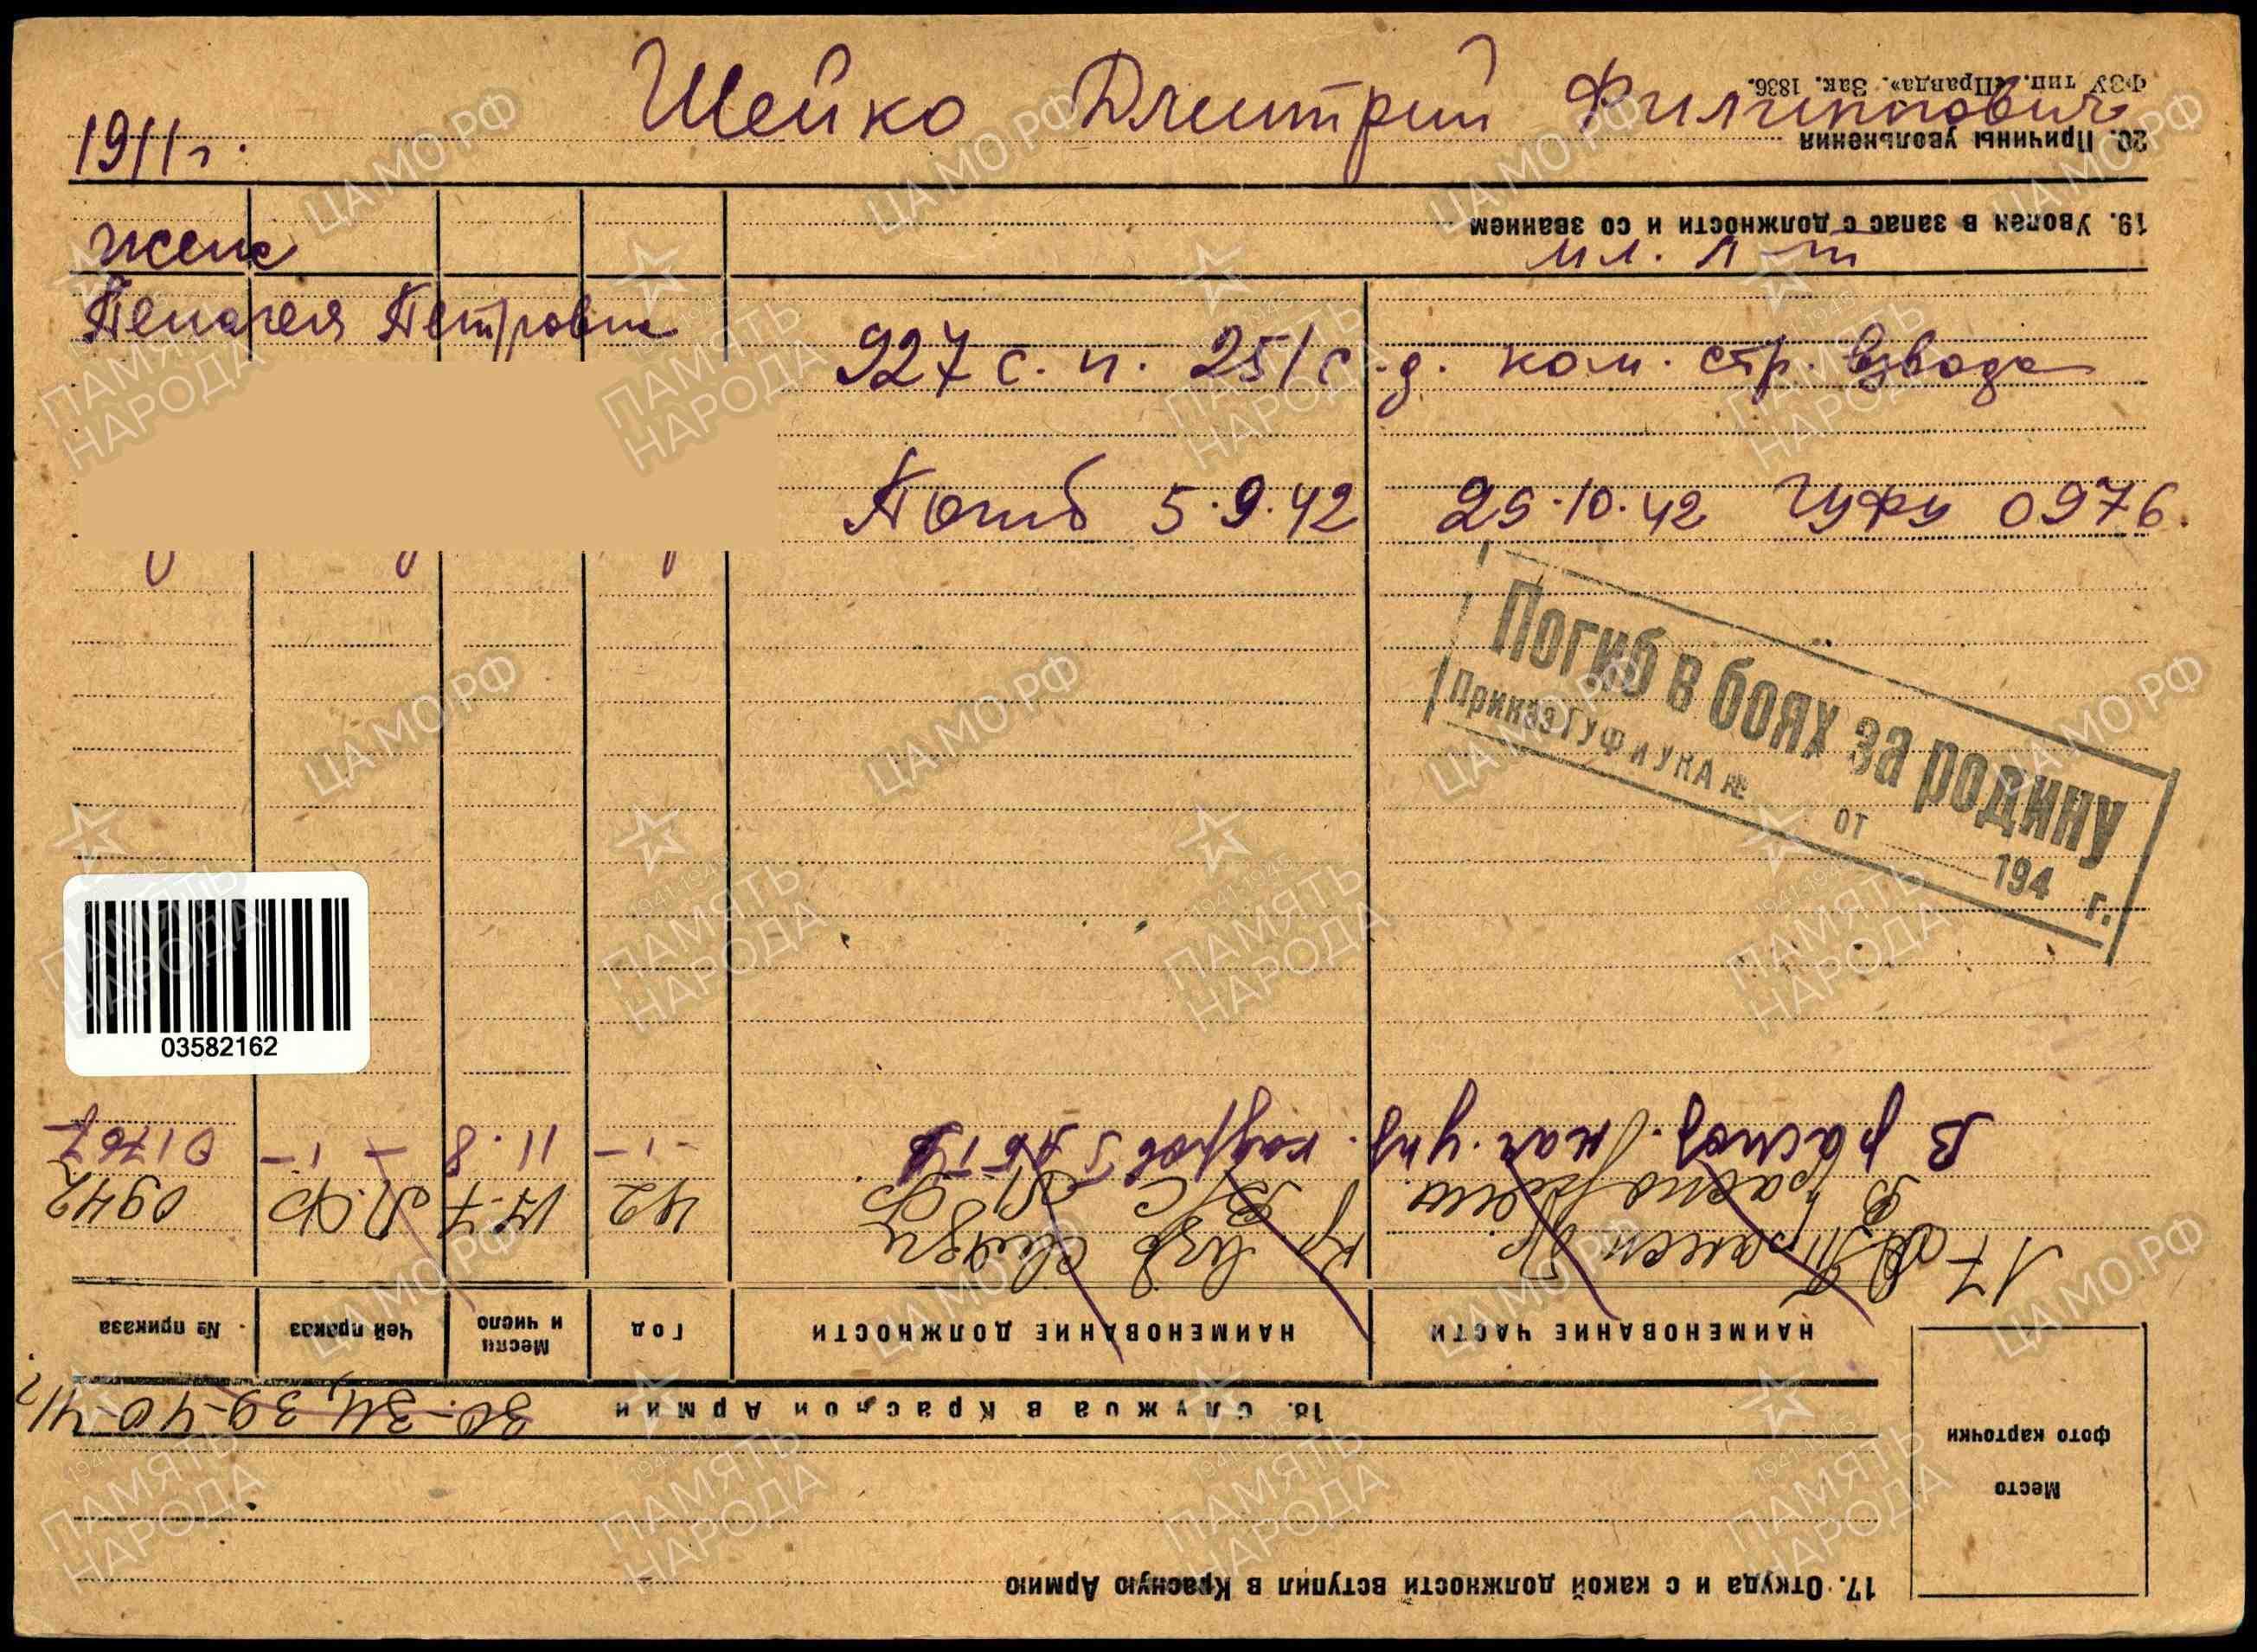 Шейко Дмитрий Филиппович
1911 г.
ФЗУ тип. «Правда». Зак. 1836.
20. Причины увольнения
19. Уволен в запас с должности и со званием
мл. л-т
жена
Пелагея Петровна
927 с. п. 251 с. д. ком. стр. взвода
Погиб 5.9.42 25.10.42 ГУФУ 0976.
Погиб в боях за родину
Приказ ГУФ и УКА №
от 194 г.
03582162
17. Откуда и с какой должности вступил в Красную Армию
Место
фото карточки
18. Служба в Красной Армии 30-34, 39-40-41
НАИМЕНОВАНИЕ ЧАСТИ НАИМЕНОВАНИЕ ДОЛЖНОСТИ Год Месяц и число Чей приказ № приказа
17
42 17.7 0942
В распор. нач. упр. кадров -1- 11.8 -1- 01767
ЦАМО.РФ
1941-1945
ПАМЯТЬ
НАРОДА